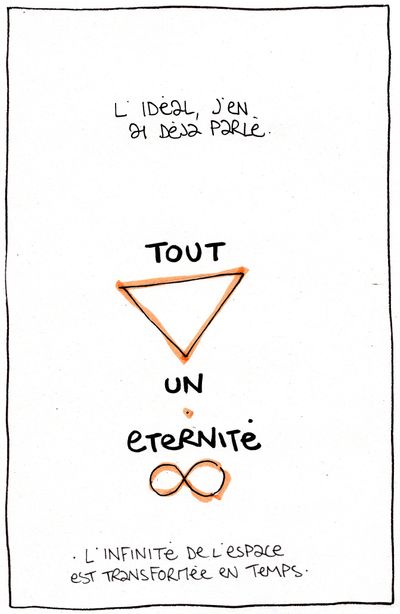 L'IDÉAL, J'EN
AI DÉJÀ PARLÉ.
TOUT
UN
ETERNITÉ
. L'INFINITÉ DE L'ESPACE
EST TRANSFORMÉE EN TEMPS.